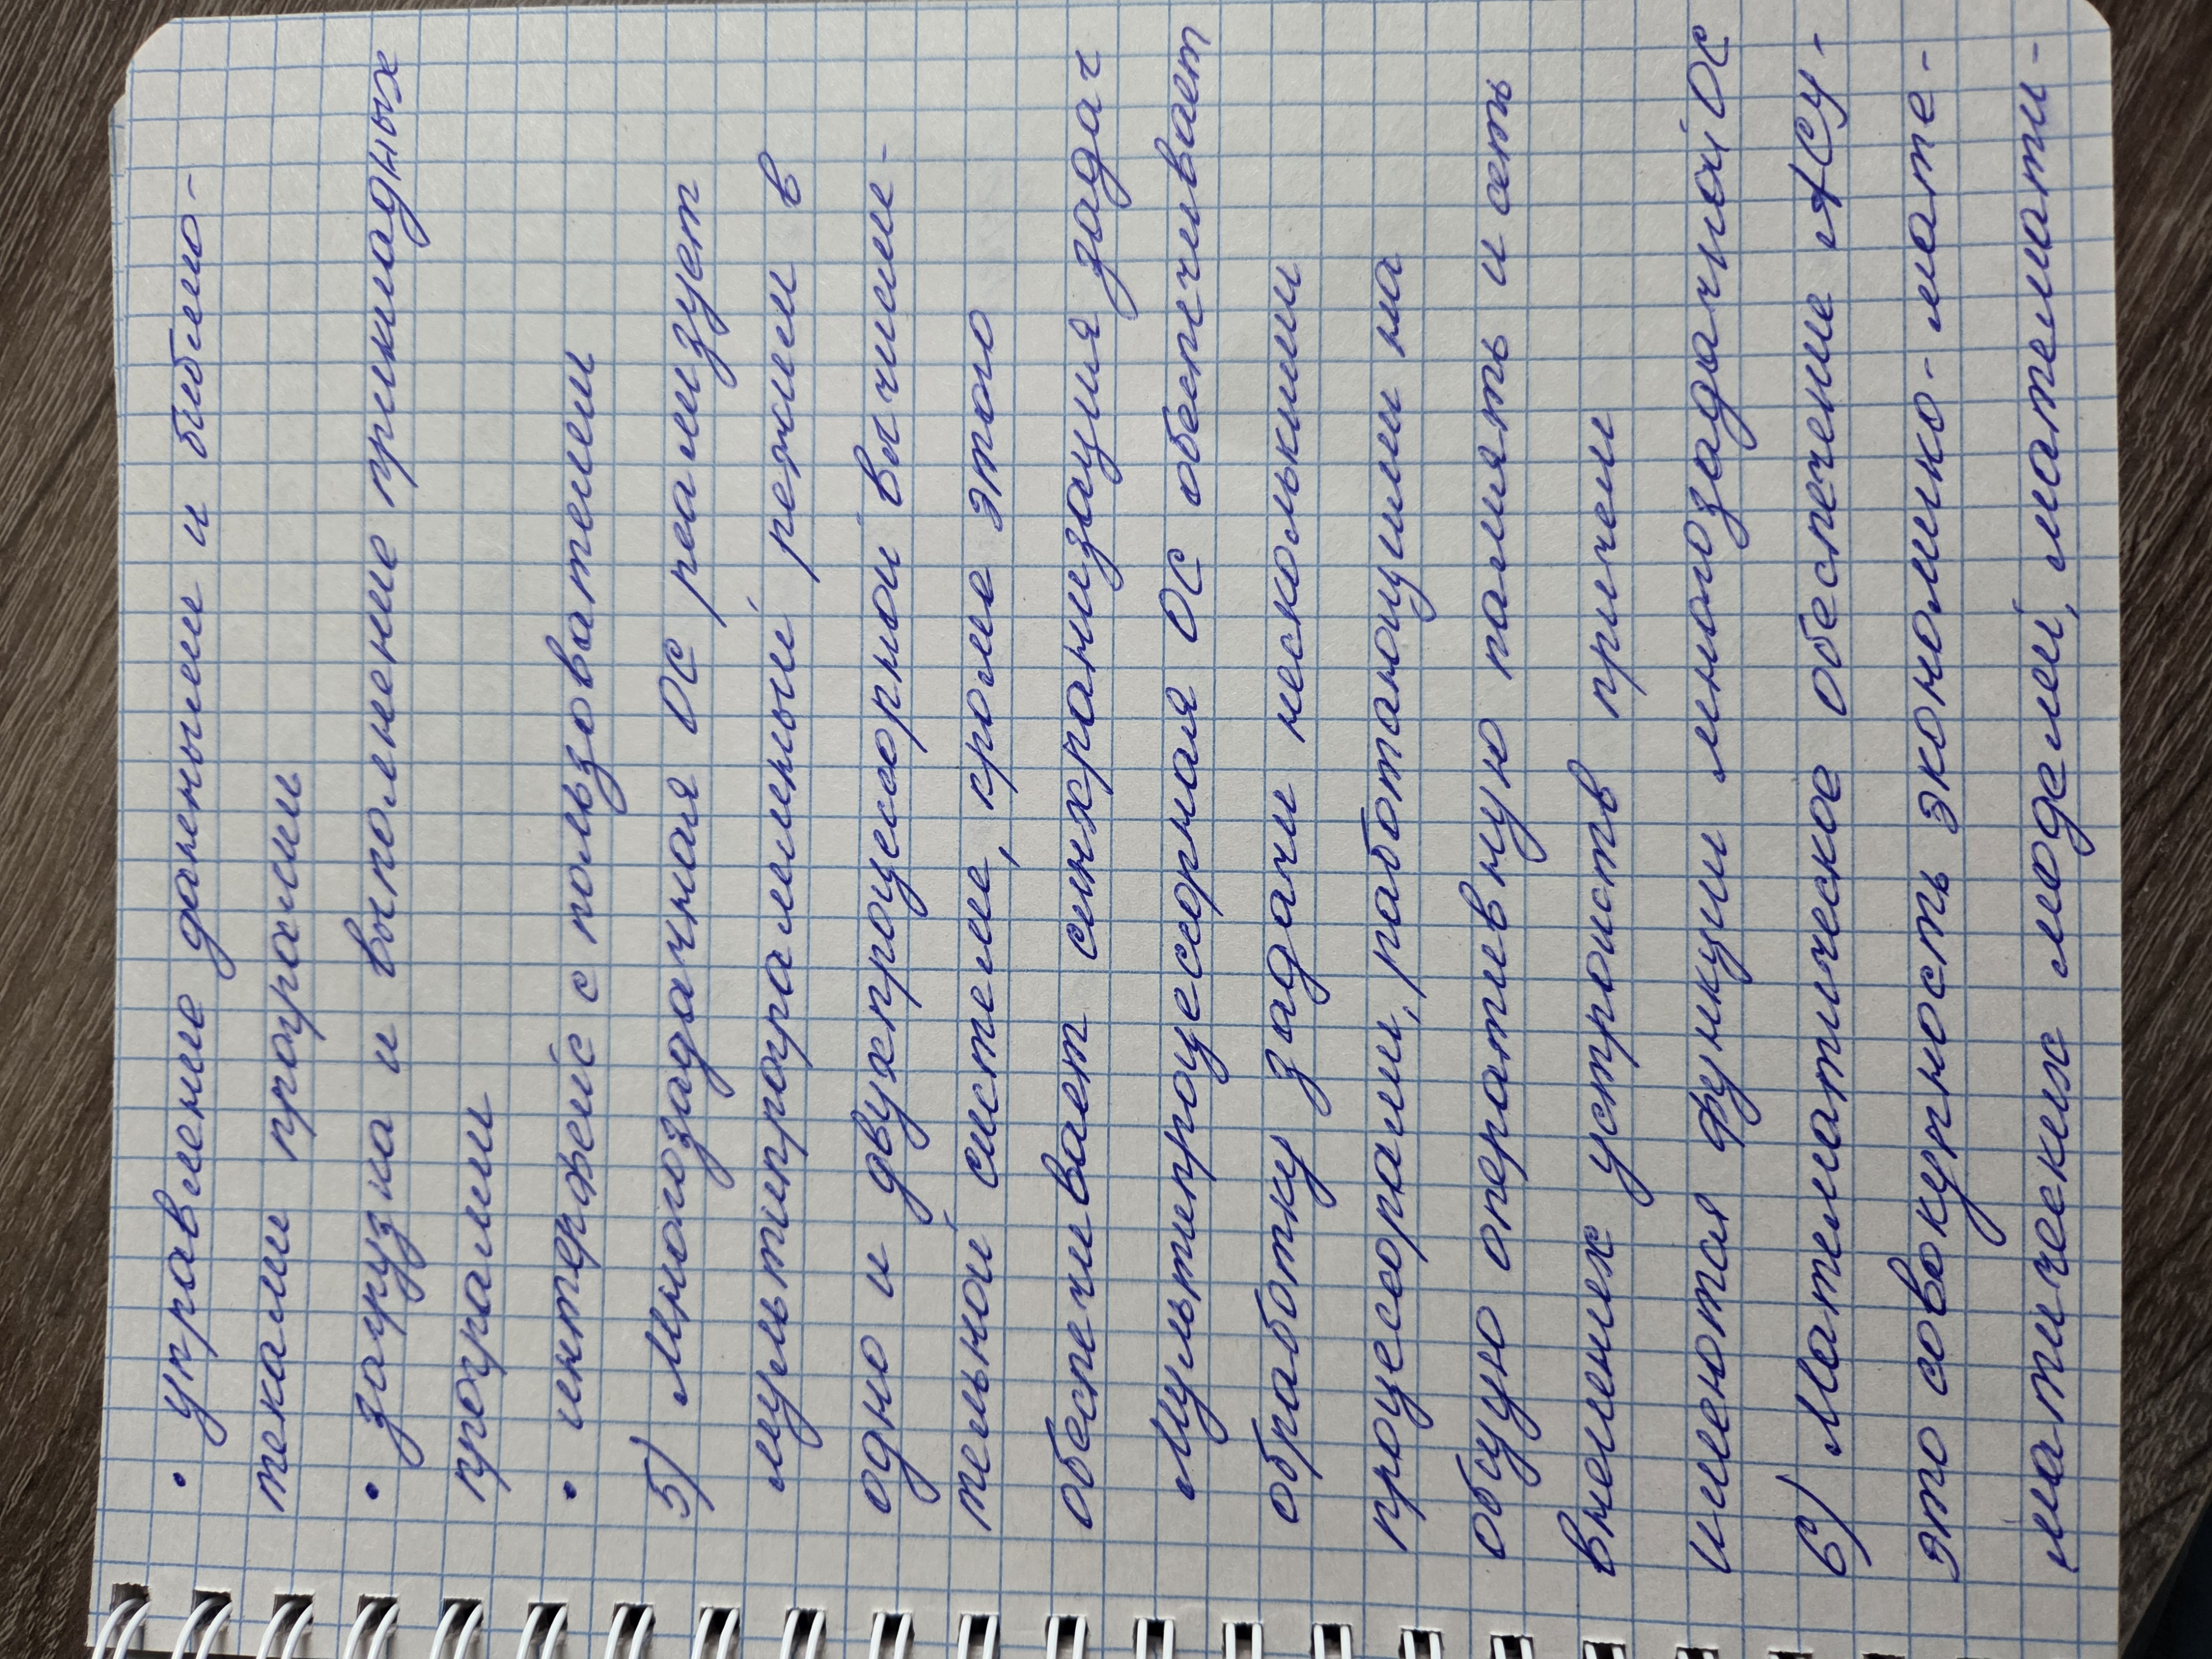 • управление данными и библио-
теками программ
• загрузка и выполнение прикладных
программ
• интерфейс с пользователем
5) Многозадачная ОС реализует
мультипрограммный режим в
одно и двухпроцессорной вычисли-
тельной системе, кроме этого
обеспечивает синхранизация задач
Мультипроцессорная ОС обеспечивает
обработку задачи несколькими
процессорами, работающими на
общую оперативную память и сеть
внешних устройств причем
имеются функции многозадачной ОС
6) Математическое обеспечение АСУ -
это совокупность экономико-мате-
матических моделей, математи-